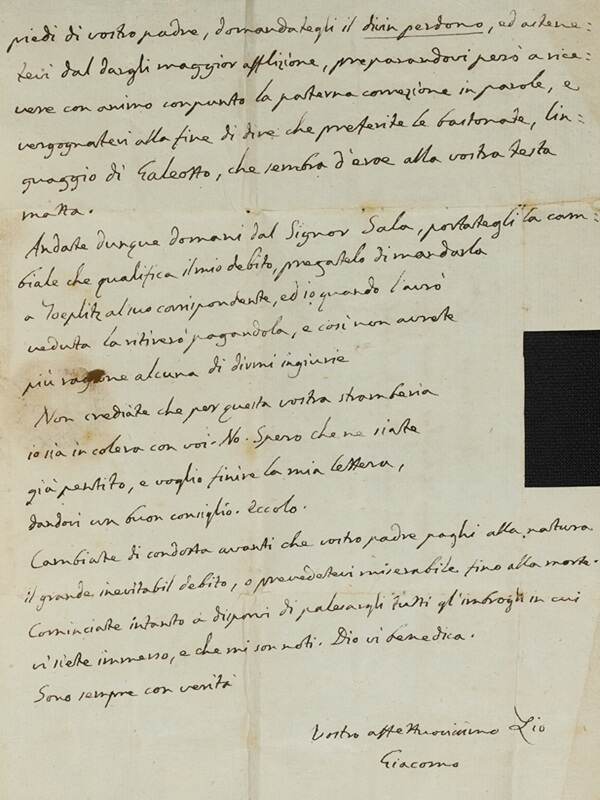 piedi di vostro padre, domandategli il divin perdono, ed astene=
tevi dal dargli maggior afflizione, preparandovi però a rice=
vere con animo conpunto la paterna correzione in parole, e
vergognatevi alla fine di dire che preferite le bastonate, lin=
guaggio di Galeotto, che sembra d'eroe alla vostra testa
matta.
Andate dunque domani dal Signor Sala, portategli la cam=
biale che qualifica il mio debito, pregatelo di mandarla
a Toeplitz al suo corrispondente, ed io quando l'avrò
veduta la ritirerò pagandola, e così non avrete
più ragione alcuna di dirmi ingiurie
Non crediate che per questa vostra stramberia
io sia in colera con voi. No. Spero che ne siate
già pentito, e voglio finire la mia lettera,
dandovi un buon consiglio. Eccolo.
Cambiate di condotta avanti che vostro padre paghi alla natura
il grande inevitabil debito, o prevedetevi miserabile fino alla morte.
Cominciate intanto a disporvi di palesargli tutti gl'imbrogli in cui
vi siete immerso, e che mi son noti. Dio vi benedica.
Sono sempre con verità
Vostro affettuosissimo Zio
Giacomo